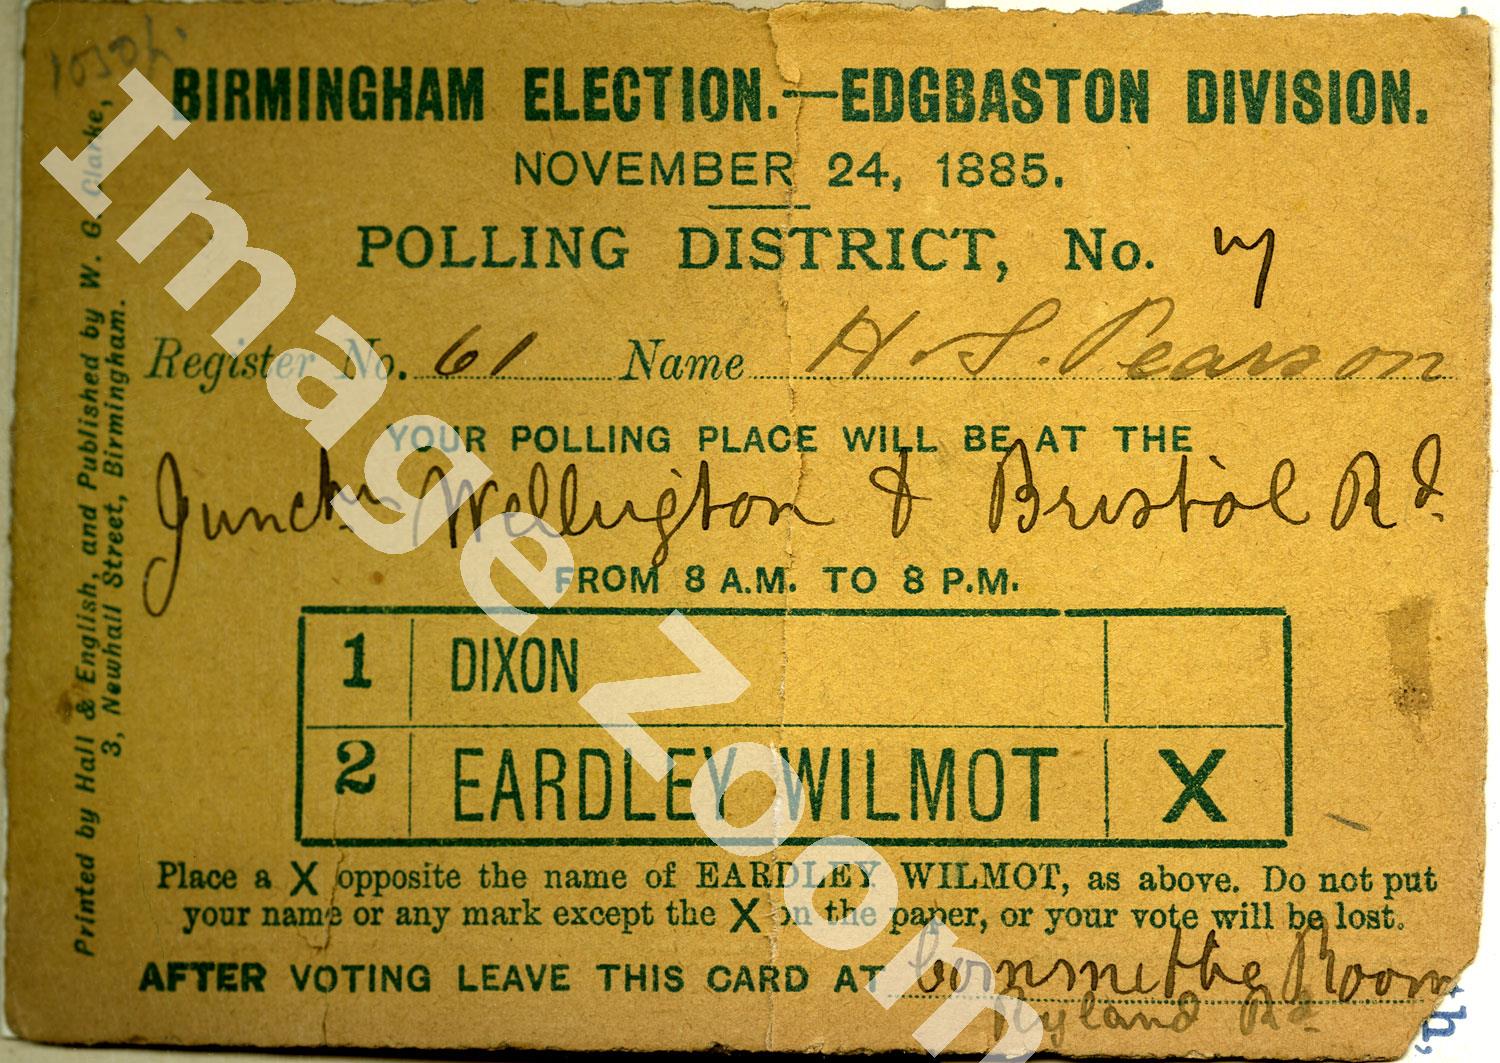 BIRMINGHAM ELECTION.—EDGBASTON DIVISION.
NOVEMBER 24, 1885.
POLLING DISTRICT, No. 7
Register No. 61 Name H. S. Pearson
YOUR POLLING PLACE WILL BE AT THE
Junctn Wellington & Bristol Rd.
FROM 8 A.M. TO 8 P.M.
1 DIXON
2 EARDLEY WILMOT X
Place a X opposite the name of EARDLEY WILMOT, as above. Do not put
your name or any mark except the X on the paper, or your vote will be lost.
AFTER VOTING LEAVE THIS CARD AT Room
Ryland Rd.
Printed by Hall & English, and Published by W. G. Clarke,
3, Newhall Street, Birmingham.
Image Zoom